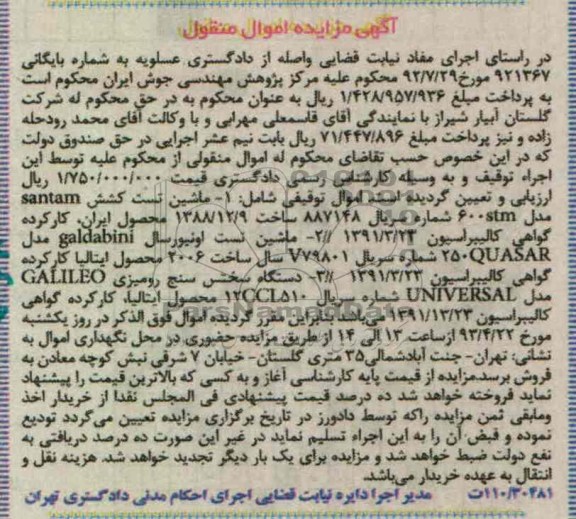 آگهی مزایده اموال منقول
در راستای اجرای مفاد نیابت قضایی واصله از دادگستری عسلویه به شماره بایگانی
۹۲۱۳۶۷ مورخ ۹۲/۷/۲۹ محکوم علیه مرکز پژوهش مهندسی جوش ایران محکوم است
به پرداخت مبلغ ۱/۴۲۸/۹۵۷/۹۳۶ ریال به عنوان محکوم به در حق محکوم له شرکت
گلستان آبیار شیراز با نمایندگی آقای قاسمعلی مهرابی و با وکالت آقای محمد رودحله
زاده و نیز پرداخت مبلغ ۷۱/۴۴۷/۸۹۶ ریال بابت نیم عشر اجرایی در حق صندوق دولت
که در این خصوص حسب تقاضای محکوم له اموال منقولی از محکوم علیه توسط این
اجراء توقیف و به وسیله کارشناس رسمی دادگستری قیمت ۱/۷۵۰/۰۰۰/۰۰۰ ریال
ارزیابی و تعیین گردیده است. اموال توقیفی شامل: ۱- ماشین تست کشش santam
مدل ۶۰۰stm شماره سریال ۸۸۷۱۴۸ ساخت ۱۳۸۸/۱۲/۹ محصول ایران، کارکرده
گواهی کالیبراسیون ۱۳۹۱/۳/۲۳ //۲- ماشین تست اونیورسال galdabini مدل
۲۵۰QUASAR شماره سریال V۷۹۸۰۱ سال ساخت ۲۰۰۶ محصول ایتالیا کارکرده
گواهی کالیبراسیون ۱۳۹۱/۳/۲۳ //۳- دستگاه سختی سنج رومیزی GALILEO
مدل UNIVERSAL شماره سریال ۱۲CCL۵۱۰ محصول ایتالیا، کارکرده گواهی
کالیبراسیون ۱۳۹۱/۱۳/۲۳ می‌باشد بنابراین مقرر گردیده اموال فوق الذکر در روز یکشنبه
مورخ ۹۳/۴/۲۲ ازساعت ۱۳ الی ۱۴ از طریق مزایده حضوری در محل نگهداری اموال به
نشانی: تهران- جنت آبادشمالی۳۵ متری گلستان- خیابان ۷ شرقی نبش کوچه معادن به
فروش برسد.مزایده از قیمت پایه کارشناسی آغاز و به کسی که بالاترین قیمت را پیشنهاد
نماید فروخته خواهد شد ده درصد قیمت پیشنهادی فی المجلس نقدا از خریدار اخذ
ومابقی ثمن مزایده راکه توسط دادورز در تاریخ برگزاری مزایده تعیین می‌گردد تودیع
نموده و قبض آن را به این اجراء تسلیم نماید در غیر این صورت ده درصد دریافتی به
نفع دولت ضبط خواهد شد و مزایده برای یک بار دیگر تجدید خواهد شد. هزینه نقل و
انتقال به عهده خریدار می‌باشد.
۱۱۰/۳۰۴۸۱ت مدیر اجرا دایره نیابت قضایی اجرای احکام مدنی دادگستری تهران